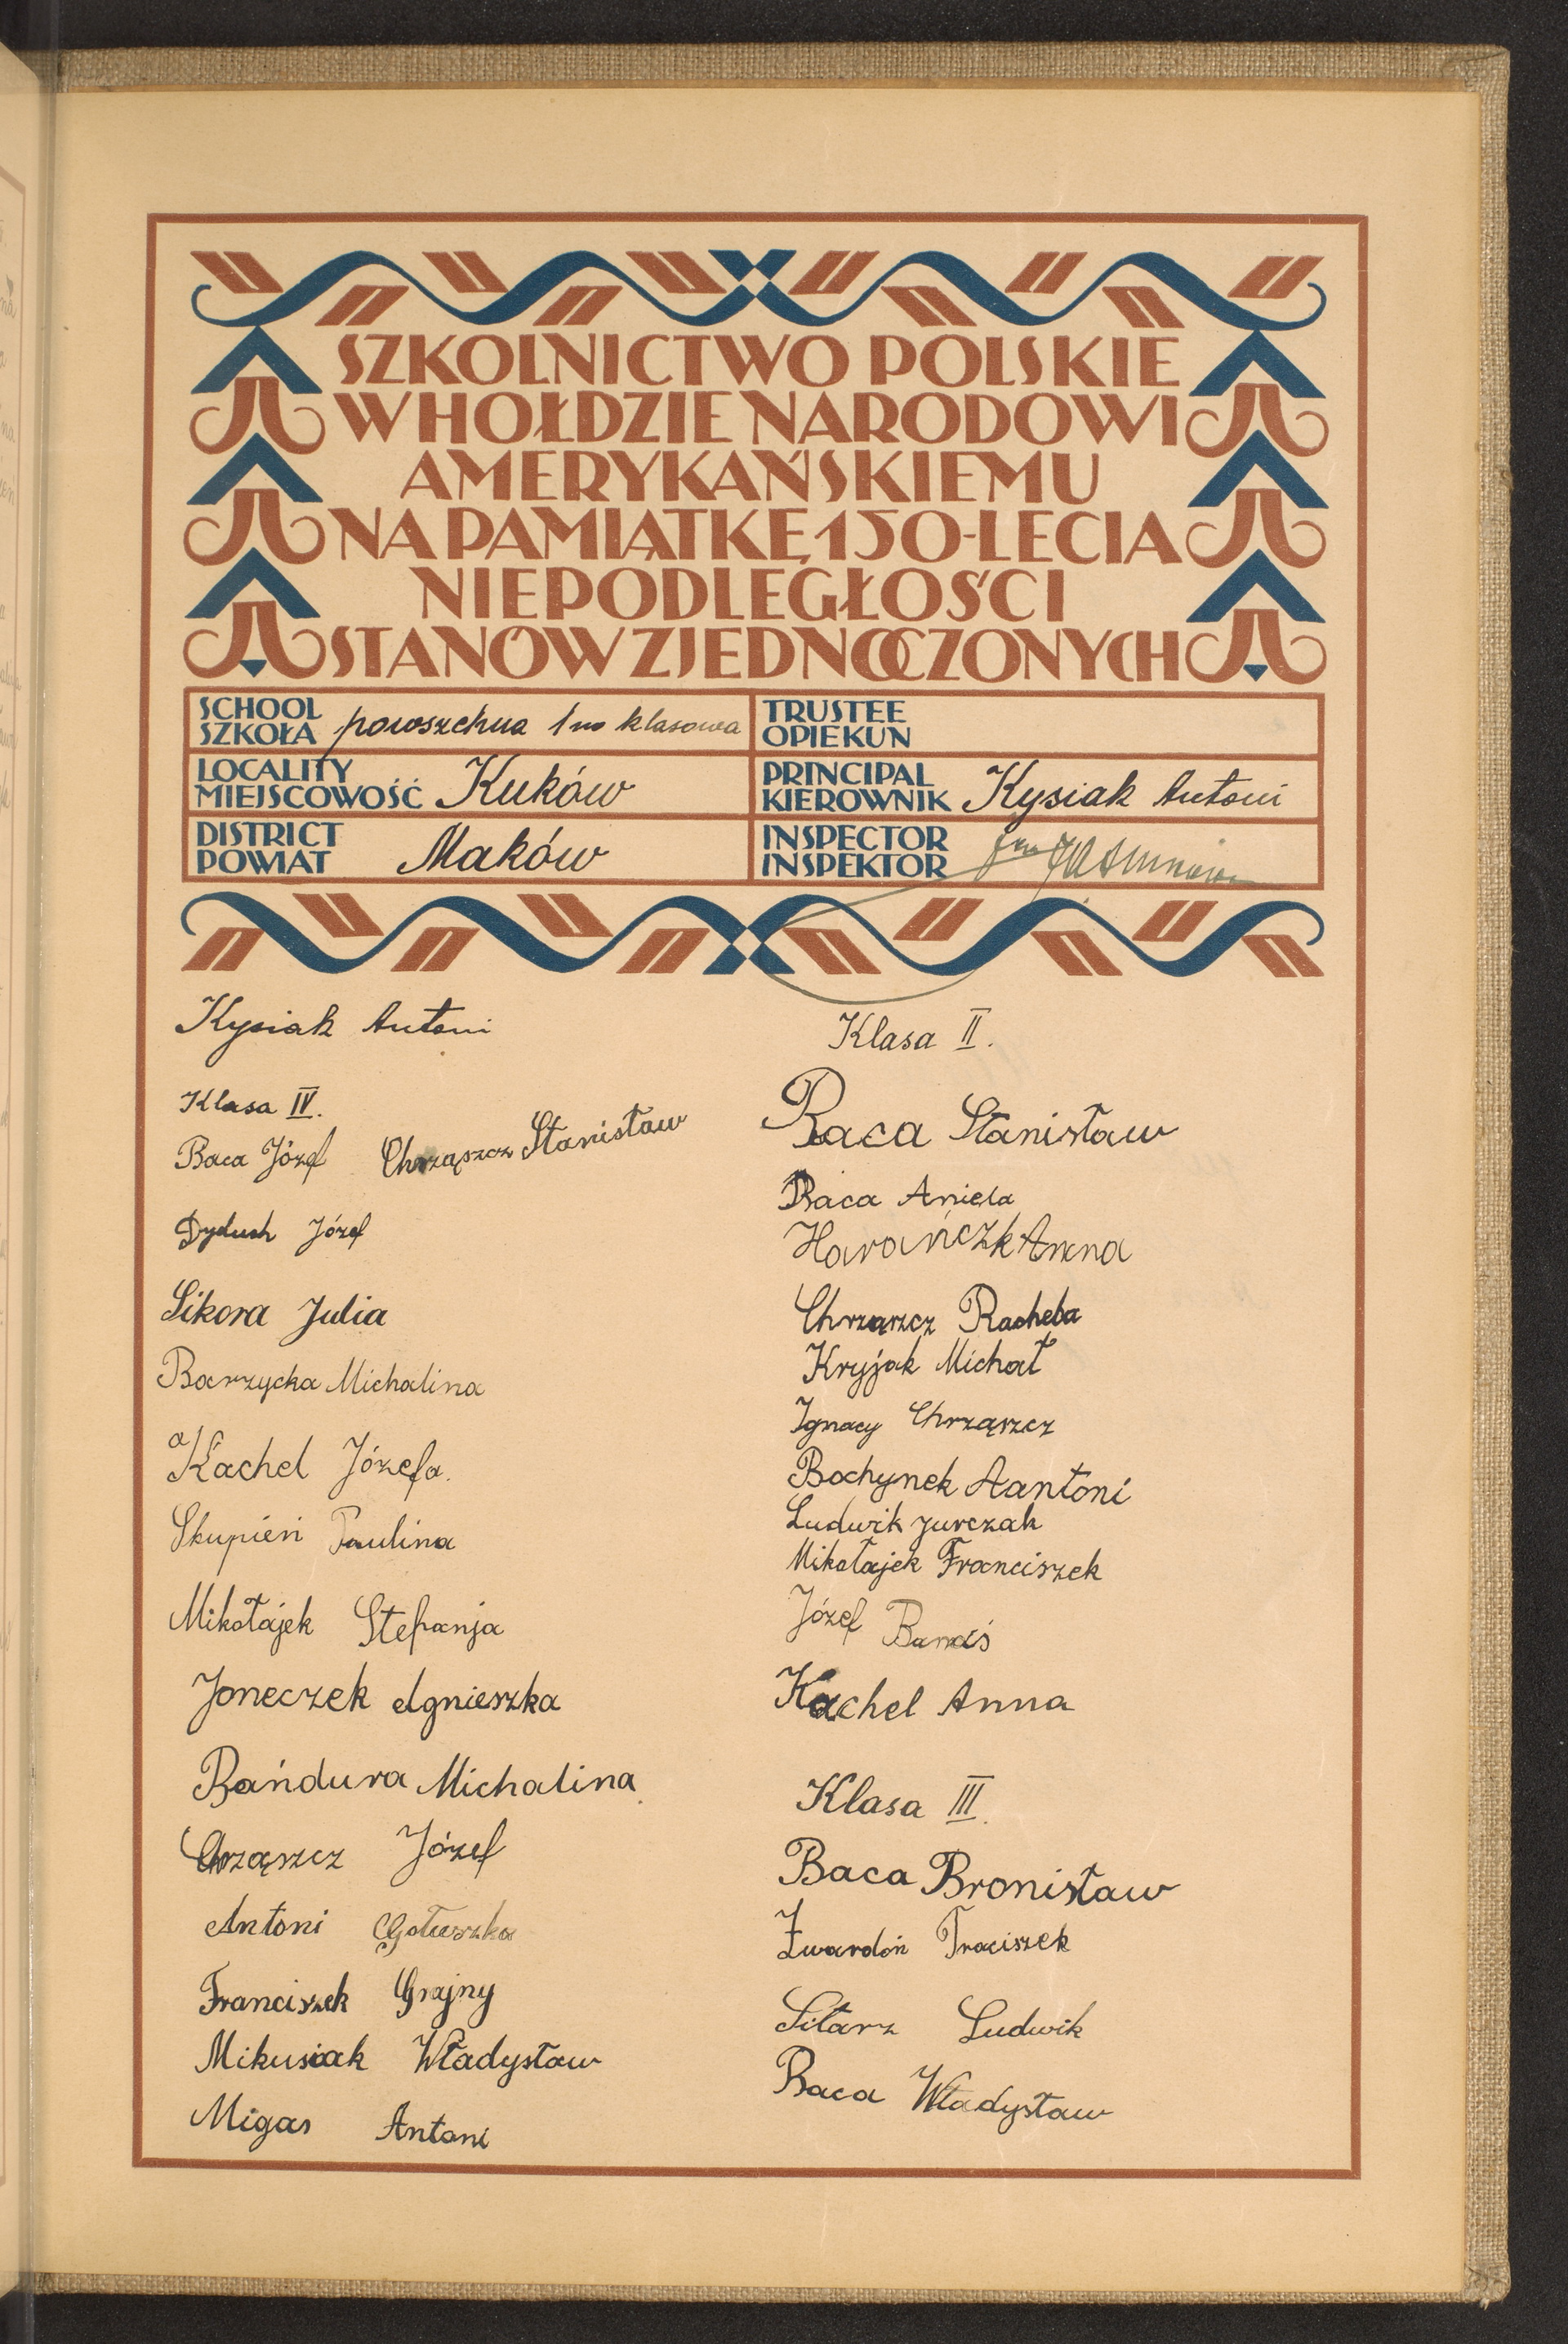 SZKOLNICTWO POLSKIE
W HOŁDZIE NARODOWI
AMERYKAŃSKIEMU
NA PAMIĄTKĘ 150-LECIA
NIEPODLEGŁOŚCI
STANÓW ZJEDNOCZONYCH
SCHOOL
SZKOŁA powszechna 1no klasowa
TRUSTEE
OPIEKUN
LOCALITY
MIEJSCOWOŚĆ Kuków
PRINCIPAL
KIEROWNIK Kysiak Antoni
DISTRICT
POWIAT Maków
INSPECTOR
INSPEKTOR
Kysiak Antoni
Klasa IV.
Baca Józef Chrząszcz Stanisław
Dyduch Józef
Sikora Julia
Barzycka Michalina
Kachel Józefa.
Skupień Paulina
Mikołajek Stefanja
Joneczek Agnieszka
Bańdura Michalina
Chrząszcz Józef
Antoni Gołuszka
Franciszek Grajny
Mikusiak Władysław
Migas Antoni
Klasa II.
Baca Stanisław
Baca Aniela
Harańczk Anna
Chrząszcz Rachela
Kryjak Michał
Ignacy Chrząszcz
Bochynek Aantoni
Ludwik Jurczak
Mikołajek Franciszek
Józef Banaś
Kachel Anna
Klasa III.
Baca Bronisław
Zwardoń Franciszek
Sitarz Ludwik
Baca Władysław